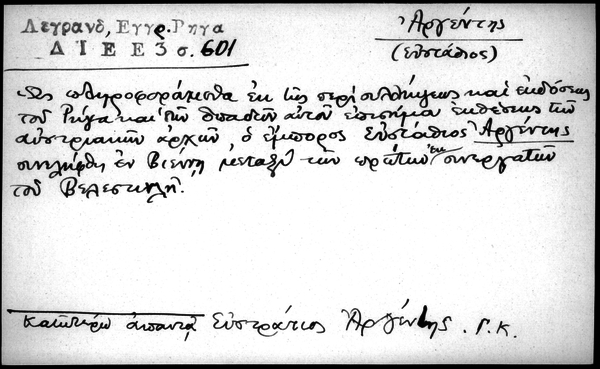 Λεγρανδ, Εγγρ. Ρηγα
Δ Ι Ε Ε 3 σ. 601
Ἀργέντης
(Εὐστάθιος)
Ὡς πληροφορούμεθα ἐκ τῆς περὶ συλλήψεως καὶ ἐκδόσεως
τοῦ Ρήγα καὶ τῶν ὀπαδῶν αὐτοῦ ἐπισήμου ἐκθέσεως τῶν
αὐστριακῶν ἀρχῶν, ὁ ἔμπορος Εὐστάθιος Ἀργέντης
συνελήφθη ἐν Βιέννῃ μεταξὺ τῶν πρώτων ἐκ συνεργατῶν
τοῦ Βελεστινλῆ.
Κατωτέρω ἀπαντᾷ Εὐστράτιος Ἀργέντης. Γ. Κ.